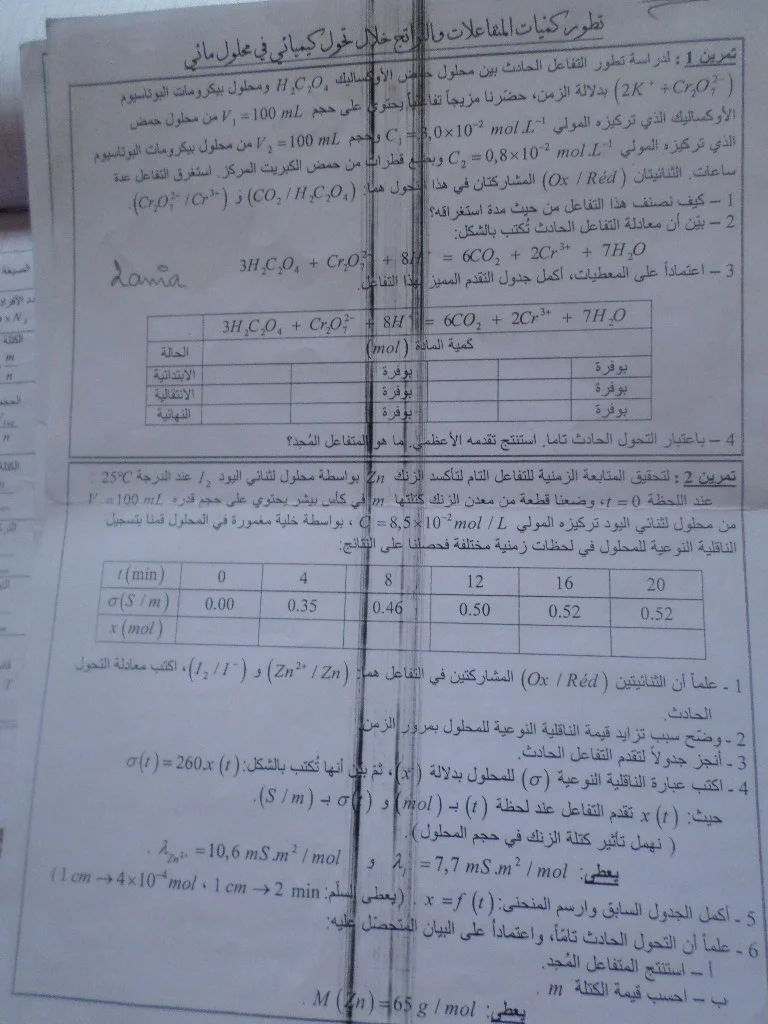 تطور كميات المتفاعلات والنواتج خلال تحول كيميائي في محلول مائي
تمرين 1: لدراسة تطور التفاعل الحادث بين محلول حمض الأوكساليك H₂C₂O₄ ومحلول بيكرومات البوتاسيوم
(2K⁺ + Cr₂O₇²⁻) بدلالة الزمن، حضّرنا مزيجاً تفاعلياً يحتوي على حجم V₁ = 100 mL من محلول حمض
الأوكساليك الذي تركيزه المولي C₁ = 3,0×10⁻² mol.L⁻¹ وحجم V₂ = 100 mL من محلول بيكرومات البوتاسيوم
الذي تركيزه المولي C₂ = 0,8×10⁻² mol.L⁻¹ وبضع قطرات من حمض الكبريت المركز. استغرق التفاعل عدة
ساعات. الثنائيتان (Ox / Réd) المشاركتان في هذا التحول هما: (CO₂ / H₂C₂O₄) و (Cr₂O₇²⁻ / Cr³⁺).
1 – كيف نصنف هذا التفاعل من حيث مدة استغراقه؟
2 – بيّن أن معادلة التفاعل الحادث تُكتب بالشكل:
3H₂C₂O₄ + Cr₂O₇²⁻ + 8H⁺ = 6CO₂ + 2Cr³⁺ + 7H₂O
Lamia
3 – اعتماداً على المعطيات، أكمل جدول التقدم المميز لهذا التفاعل.
3H₂C₂O₄ + Cr₂O₇²⁻ + 8H⁺ = 6CO₂ + 2Cr³⁺ + 7H₂O
الحالة كمية المادة (mol)
الابتدائية بوفرة بوفرة
الانتقالية بوفرة بوفرة
النهائية بوفرة بوفرة
4 – باعتبار التحول الحادث تاما. استنتج تقدمه الأعظمي. ما هو المتفاعل المُحد؟
تمرين 2: لتحقيق المتابعة الزمنية للتفاعل التام لتأكسد الزنك Zn بواسطة محلول لثنائي اليود I₂ عند الدرجة 25°C :
عند اللحظة t = 0، وضعنا قطعة من معدن الزنك كتلتها m في كأس بيشر يحتوي على حجم قدره V = 100 mL
من محلول لثنائي اليود تركيزه المولي C = 8,5×10⁻² mol / L ، بواسطة خلية مغمورة في المحلول قمنا بتسجيل
الناقلية النوعية للمحلول في لحظات زمنية مختلفة فحصلنا على النتائج:
t (min) 0 4 8 12 16 20
σ(S / m) 0.00 0.35 0.46 0.50 0.52 0.52
x (mol)
1 - علماً أن الثنائيتين (Ox / Réd) المشاركتين في التفاعل هما: (Zn²⁺ / Zn) و (I₂ / I⁻)، اكتب معادلة التحول
الحادث.
2 - وضّح سبب تزايد قيمة الناقلية النوعية للمحلول بمرور الزمن.
3 - أنجز جدولاً لتقدم التفاعل الحادث.
4 - اكتب عبارة الناقلية النوعية (σ) للمحلول بدلالة (x)، ثمّ بيّن أنها تُكتب بالشكل: σ(t) = 260.x (t)
حيث: x (t) تقدم التفاعل عند لحظة (t) بـ (mol) و σ(t) بـ (S / m).
( نهمل تأثير كتلة الزنك في حجم المحلول).
يعطى: λ I⁻ = 7,7 mS.m² / mol و λ Zn²⁺ = 10,6 mS.m² / mol .
5 - أكمل الجدول السابق وارسم المنحنى: x = f (t) . (يعطى السلّم: 1 cm → 2 min ، 1 cm → 4×10⁻⁴ mol)
6 - علماً أن التحول الحادث تامّاً، واعتماداً على البيان المتحصّل عليه:
أ – استنتج المتفاعل المُحد.
ب – احسب قيمة الكتلة m .
يعطى: M (Zn) = 65 g / mol .